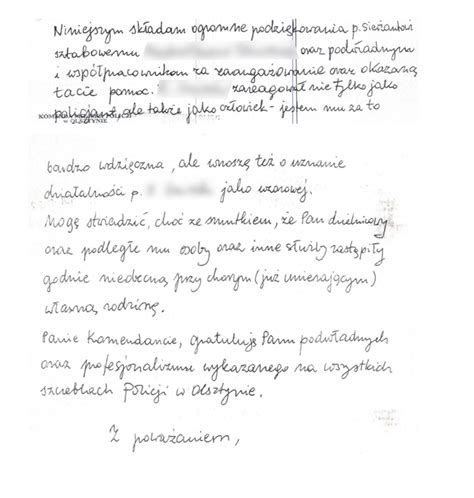 Niniejszym składam ogromne podziękowania p. Sierżantowi
sztabowemu oraz podwładnym
i współpracownikom za zaangażowanie oraz okazaną
tacie pomoc. zareagował nie tylko jako
policjant, ale także jako człowiek - jestem mu za to
KOMENDA
w OLSZTYNIE
bardzo wdzięczna, ale wnoszę też o uznanie
działalności p. jako wzorowej.
Mogę stwierdzić, choć ze smutkiem, że Pan dzielnicowy
oraz podległe mu osoby oraz inne służby zastąpiły
godnie nieobecną przy chorym (już umierającym)
własną rodzinę.
Panie Komendancie, gratuluję Panu podwładnych
oraz profesjonalizmu wykazanego na wszystkich
szczeblach Policji w Olsztynie.
Z poważaniem,